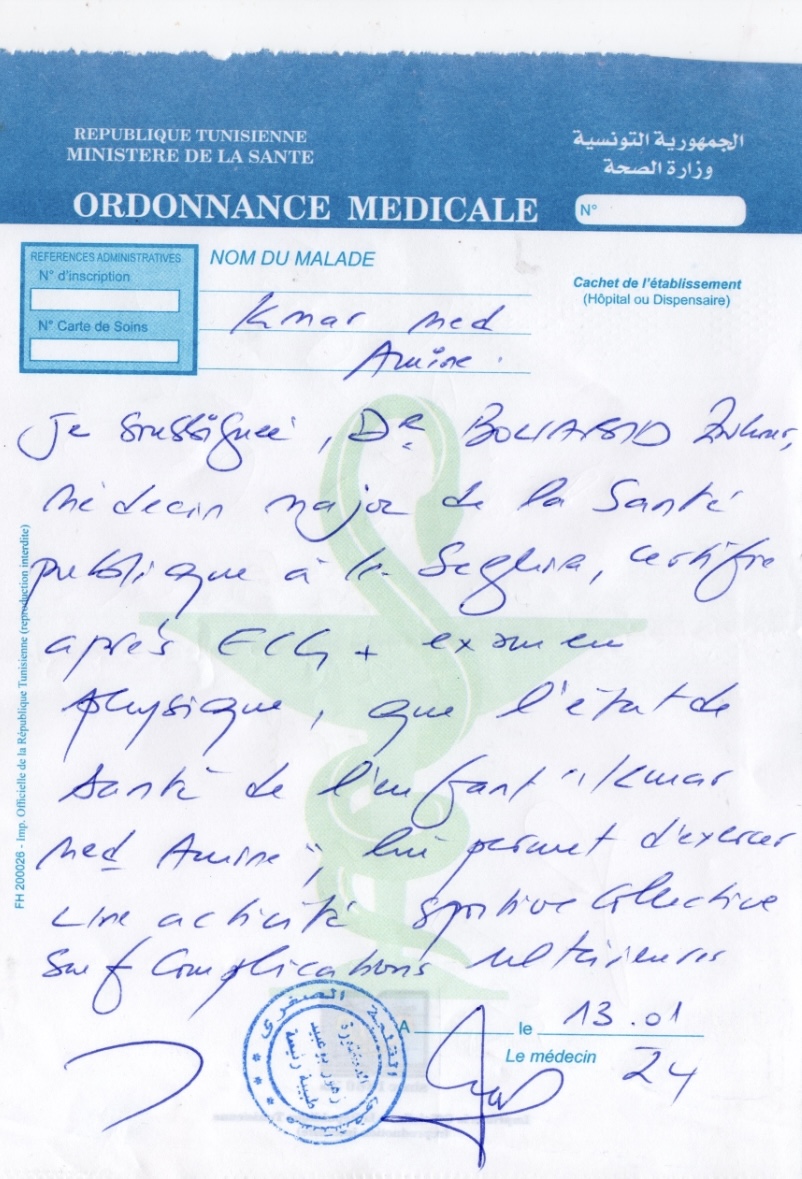 REPUBLIQUE TUNISIENNE
MINISTERE DE LA SANTE
الجمهورية التونسية
وزارة الصحة
ORDONNANCE MEDICALE
N°
REFERENCES ADMINISTRATIVES
N° d'inscription
N° Carte de Soins
NOM DU MALADE
Kmar Med
Amine.
Cachet de l'établissement
(Hôpital ou Dispensaire)
Je soussignée, Dr
médecin major de la Santé
publique à la Seghira, certifie
après ECG + examen
physique, que l'état de
santé de l'enfant "Kmar
Med Amine", lui permet d'exercer
une activité sportive collective
sauf complications ultérieures
A le 13.01
Le médecin 24
القلعة الصغرى
الدكتورة
FH 200026 - Imp. Officielle de la République Tunisienne (reproduction interdite)